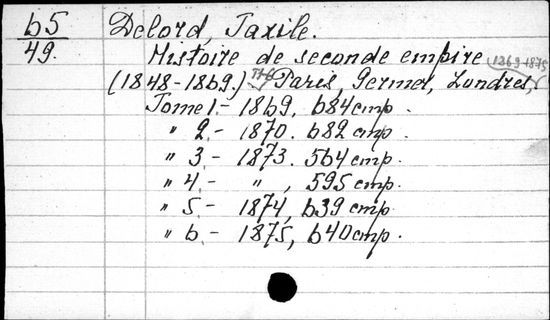 65
49.
Delord, Taxile.
Histoire de seconde empire
1869-1875
(1848-1869.) Paris, Germer, Londres,
Tome 1.- 1869, 684 cmp.
" 2.- 1870. 682 cmp.
" 3.- 1873. 564 cmp.
" 4.- " , 595 cmp.
" 5.- 1874, 639 cmp.
" 6.- 1875, 640 cmp.